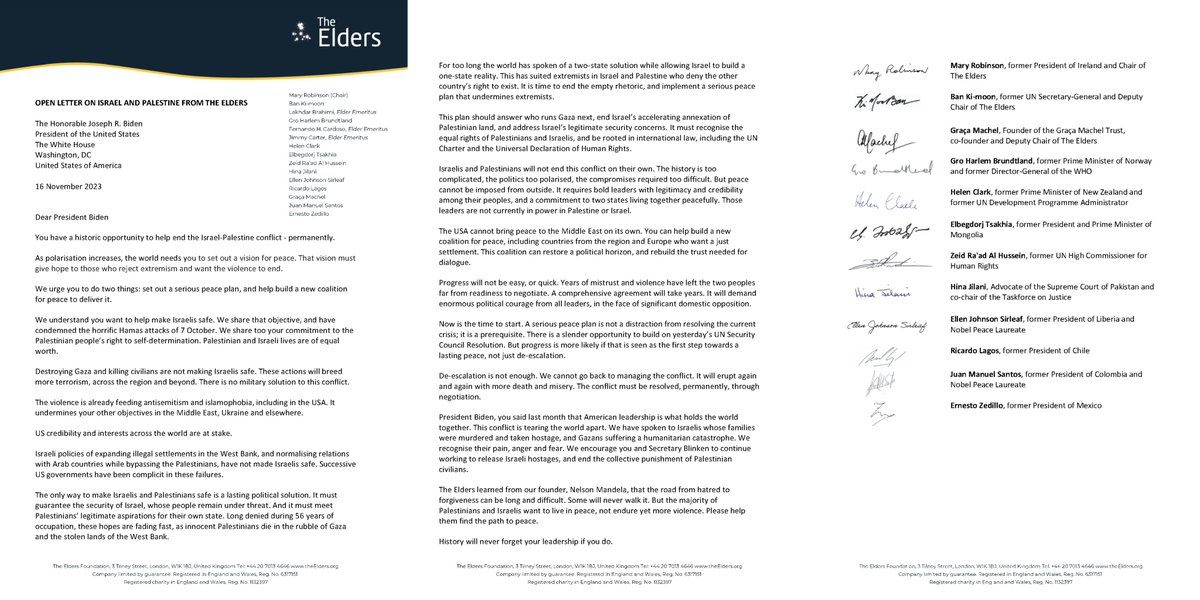 The
Elders
OPEN LETTER ON ISRAEL AND PALESTINE FROM THE ELDERS
The Honorable Joseph R. Biden
President of the United States
The White House
Washington, DC
United States of America
16 November 2023
Mary Robinson (Chair)
Ban Ki-moon
Lakhdar Brahimi, Elder Emeritus
Gro Harlem Brundtland
Fernando H. Cardoso, Elder Emeritus
Jimmy Carter, Elder Emeritus
Helen Clark
Elbegdorj Tsakhia
Zeid Ra'ad Al Hussein
Hina Jilani
Ellen Johnson Sirleaf
Ricardo Lagos
Graça Machel
Juan Manuel Santos
Ernesto Zedillo
Dear President Biden
You have a historic opportunity to help end the Israel-Palestine conflict - permanently.
As polarisation increases, the world needs you to set out a vision for peace. That vision must
give hope to those who reject extremism and want the violence to end.
We urge you to do two things: set out a serious peace plan, and help build a new coalition
for peace to deliver it.
We understand you want to help make Israelis safe. We share that objective, and have
condemned the horrific Hamas attacks of 7 October. We share too your commitment to the
Palestinian people's right to self-determination. Palestinian and Israeli lives are of equal
worth.
Destroying Gaza and killing civilians are not making Israelis safe. These actions will breed
more terrorism, across the region and beyond. There is no military solution to this conflict.
The violence is already feeding antisemitism and islamophobia, including in the USA. It
undermines your other objectives in the Middle East, Ukraine and elsewhere.
US credibility and interests across the world are at stake.
Israeli policies of expanding illegal settlements in the West Bank, and normalising relations
with Arab countries while bypassing the Palestinians, have not made Israelis safe. Successive
US governments have been complicit in these failures.
The only way to make Israelis and Palestinians safe is a lasting political solution. It must
guarantee the security of Israel, whose people remain under threat. And it must meet
Palestinians' legitimate aspirations for their own state. Long denied during 56 years of
occupation, these hopes are fading fast, as innocent Palestinians die in the rubble of Gaza
and the stolen lands of the West Bank.
The Elders Foundation, 3 Tilney Street, London, W1K 1BJ, United Kingdom Tel: +44 20 7013 4646 www.theElders.org
Company limited by guarantee. Registered in England and Wales, Reg. No. 6317151
Registered charity in England and Wales, Reg. No. 1132397
For too long the world has spoken of a two-state solution while allowing Israel to build a
one-state reality. This has suited extremists in Israel and Palestine who deny the other
country's right to exist. It is time to end the empty rhetoric, and implement a serious peace
plan that undermines extremists.
This plan should answer who runs Gaza next, end Israel's accelerating annexation of
Palestinian land, and address Israel's legitimate security concerns. It must recognise the
equal rights of Palestinians and Israelis, and be rooted in international law, including the UN
Charter and the Universal Declaration of Human Rights.
Israelis and Palestinians will not end this conflict on their own. The history is too
complicated, the politics too polarised, the compromises required too difficult. But peace
cannot be imposed from outside. It requires bold leaders with legitimacy and credibility
among their peoples, and a commitment to two states living together peacefully. Those
leaders are not currently in power in Palestine or Israel.
The USA cannot bring peace to the Middle East on its own. You can help build a new
coalition for peace, including countries from the region and Europe who want a just
settlement. This coalition can restore a political horizon, and rebuild the trust needed for
dialogue.
Progress will not be easy, or quick. Years of mistrust and violence have left the two peoples
far from readiness to negotiate. A comprehensive agreement will take years. It will demand
enormous political courage from all leaders, in the face of significant domestic opposition.
Now is the time to start. A serious peace plan is not a distraction from resolving the current
crisis; it is a prerequisite. There is a slender opportunity to build on yesterday's UN Security
Council Resolution. But progress is more likely if that is seen as the first step towards a
lasting peace, not just de-escalation.
De-escalation is not enough. We cannot go back to managing the conflict. It will erupt again
and again with more death and misery. The conflict must be resolved, permanently, through
negotiation.
President Biden, you said last month that American leadership is what holds the world
together. This conflict is tearing the world apart. We have spoken to Israelis whose families
were murdered and taken hostage, and Gazans suffering a humanitarian catastrophe. We
recognise their pain, anger and fear. We encourage you and Secretary Blinken to continue
working to release Israeli hostages, and end the collective punishment of Palestinian
civilians.
The Elders learned from our founder, Nelson Mandela, that the road from hatred to
forgiveness can be long and difficult. Some will never walk it. But the majority of
Palestinians and Israelis want to live in peace, not endure yet more violence. Please help
them find the path to peace.
History will never forget your leadership if you do.
The Elders Foundation, 3 Tilney Street, London, W1K 1BJ, United Kingdom Tel: +44 20 7013 4646 www.theElders.org
Company limited by guarantee. Registered in England and Wales, Reg. No. 6317151
Registered charity in England and Wales, Reg. No. 1132397
Mary Robinson
Mary Robinson, former President of Ireland and Chair of
The Elders
Ki Moon Ban
Ban Ki-moon, former UN Secretary-General and Deputy
Chair of The Elders
GMachel
Graça Machel, Founder of the Graça Machel Trust,
co-founder and Deputy Chair of The Elders
Gro Brundtland
Gro Harlem Brundtland, former Prime Minister of Norway
and former Director-General of the WHO
Helen Clark
Helen Clark, former Prime Minister of New Zealand and
former UN Development Programme Administrator
Elbegdorj Tsakhia, former President and Prime Minister of
Mongolia
Zeid Ra'ad Al Hussein, former UN High Commissioner for
Human Rights
Hina Jilani
Hina Jilani, Advocate of the Supreme Court of Pakistan and
co-chair of the Taskforce on Justice
Ellen Johnson Sirleaf
Ellen Johnson Sirleaf, former President of Liberia and
Nobel Peace Laureate
Ricardo Lagos, former President of Chile
Juan Manuel Santos, former President of Colombia and
Nobel Peace Laureate
Ernesto Zedillo, former President of Mexico
The Elders Foundation, 3 Tilney Street, London, W1K 1BJ, United Kingdom Tel: +44 20 7013 4646 www.theElders.org
Company limited by guarantee. Registered in England and Wales, Reg. No. 6317151
Registered charity in England and Wales, Reg. No. 1132397